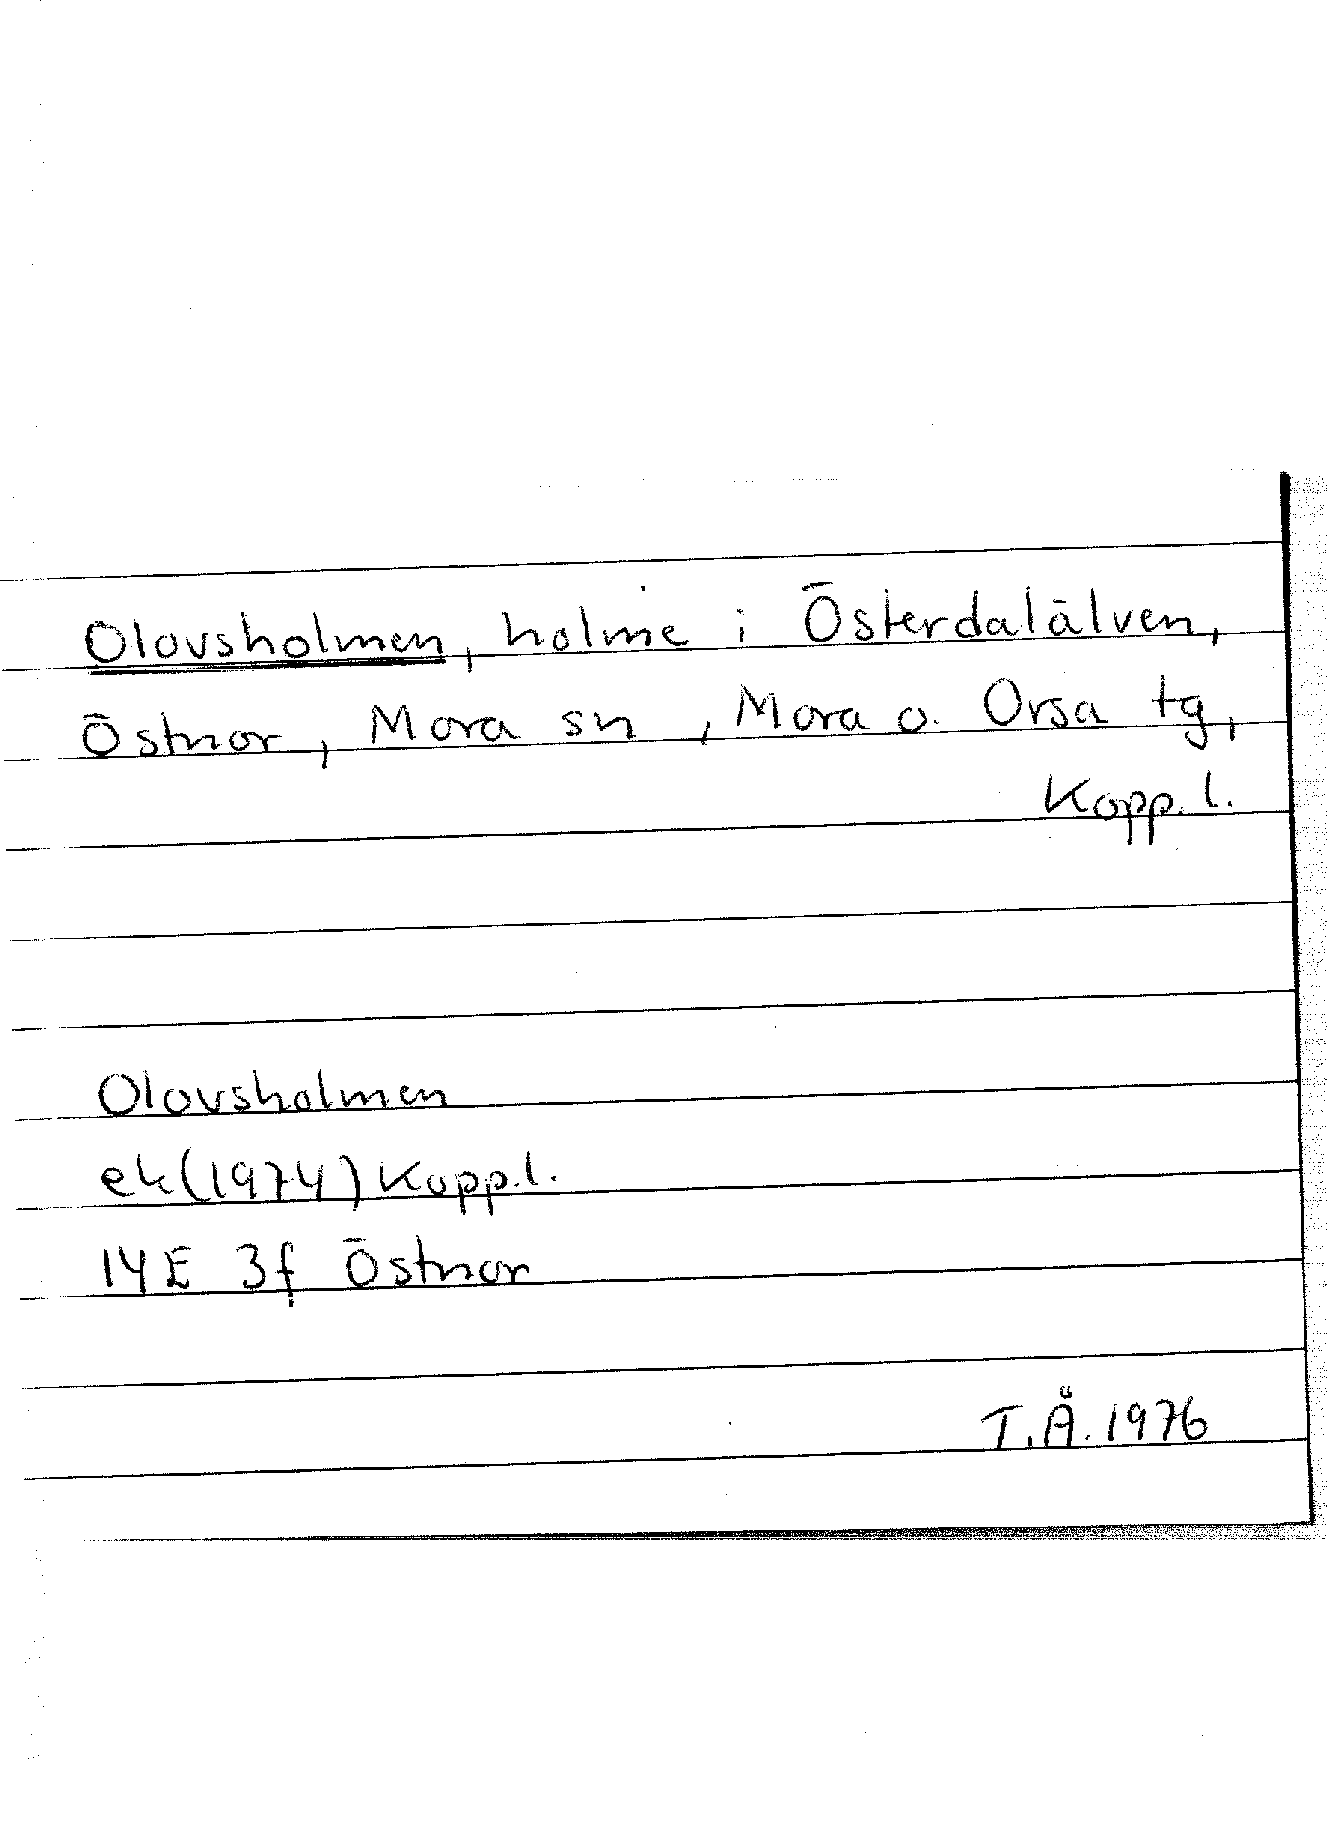 Olovsholmen, holme i Österdalälven,
Östnor, Mora sn, Mora o. Orsa tg,
Kopp. l.
Olovsholmen
ek(1974) Kopp. l.
14E 3f Östnor
T.Å. 1976